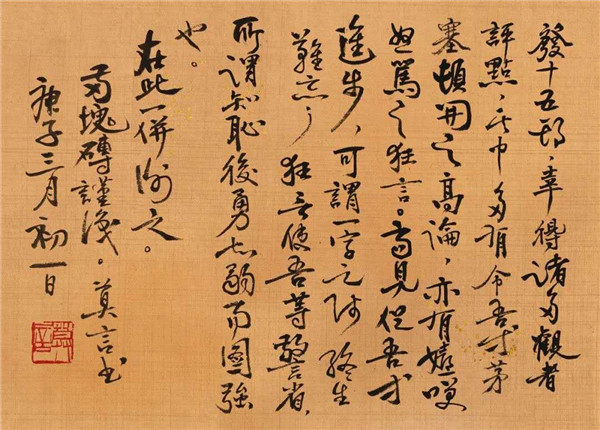 發十五期，幸得諸多觀者
評點，其中多有令吾等茅
塞頓開之高論，亦有嬉咲
怒罵之狂言。高見促吾等
進步，可謂一字之師終生
難忘；狂言使吾等警省，
所謂知恥後勇知弱而圖強
也。
在此一併謝之。
兩塊磚謹識。莫言書
庚子三月初一日